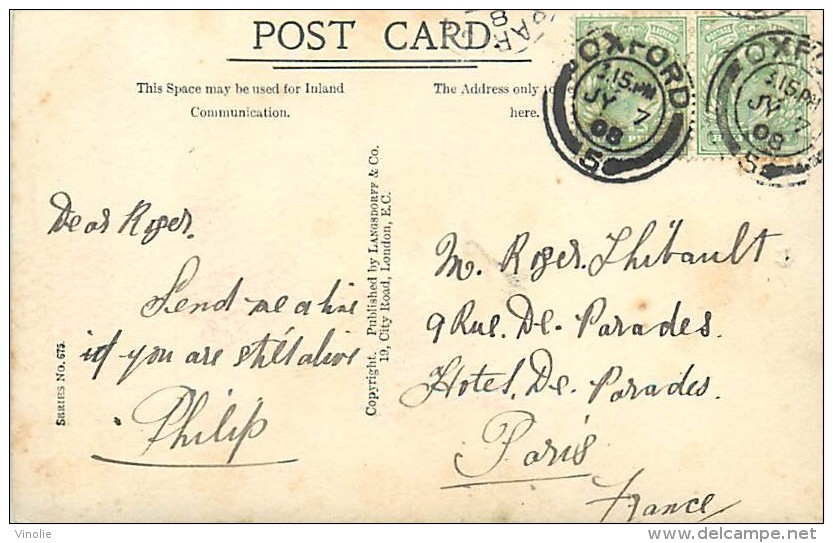 POST CARD.
This Space may be used for Inland
Communication.
The Address only to be
here.
OXFORD
3.15.PM
JY 7
08
5
OXFO
3.15.PM
JY 7
08
5
Dear Roger.
Send me a line
if you are still alive
Philip
SERIES NO. 675.
Copyright. Published by LANGSDORFF & Co.
19, City Road, London, E.C.
M. Roger. Thibault.
9 Rue. De. Parades.
Hotel. De. Parades.
Paris
France
Vinolie
delcampe.net